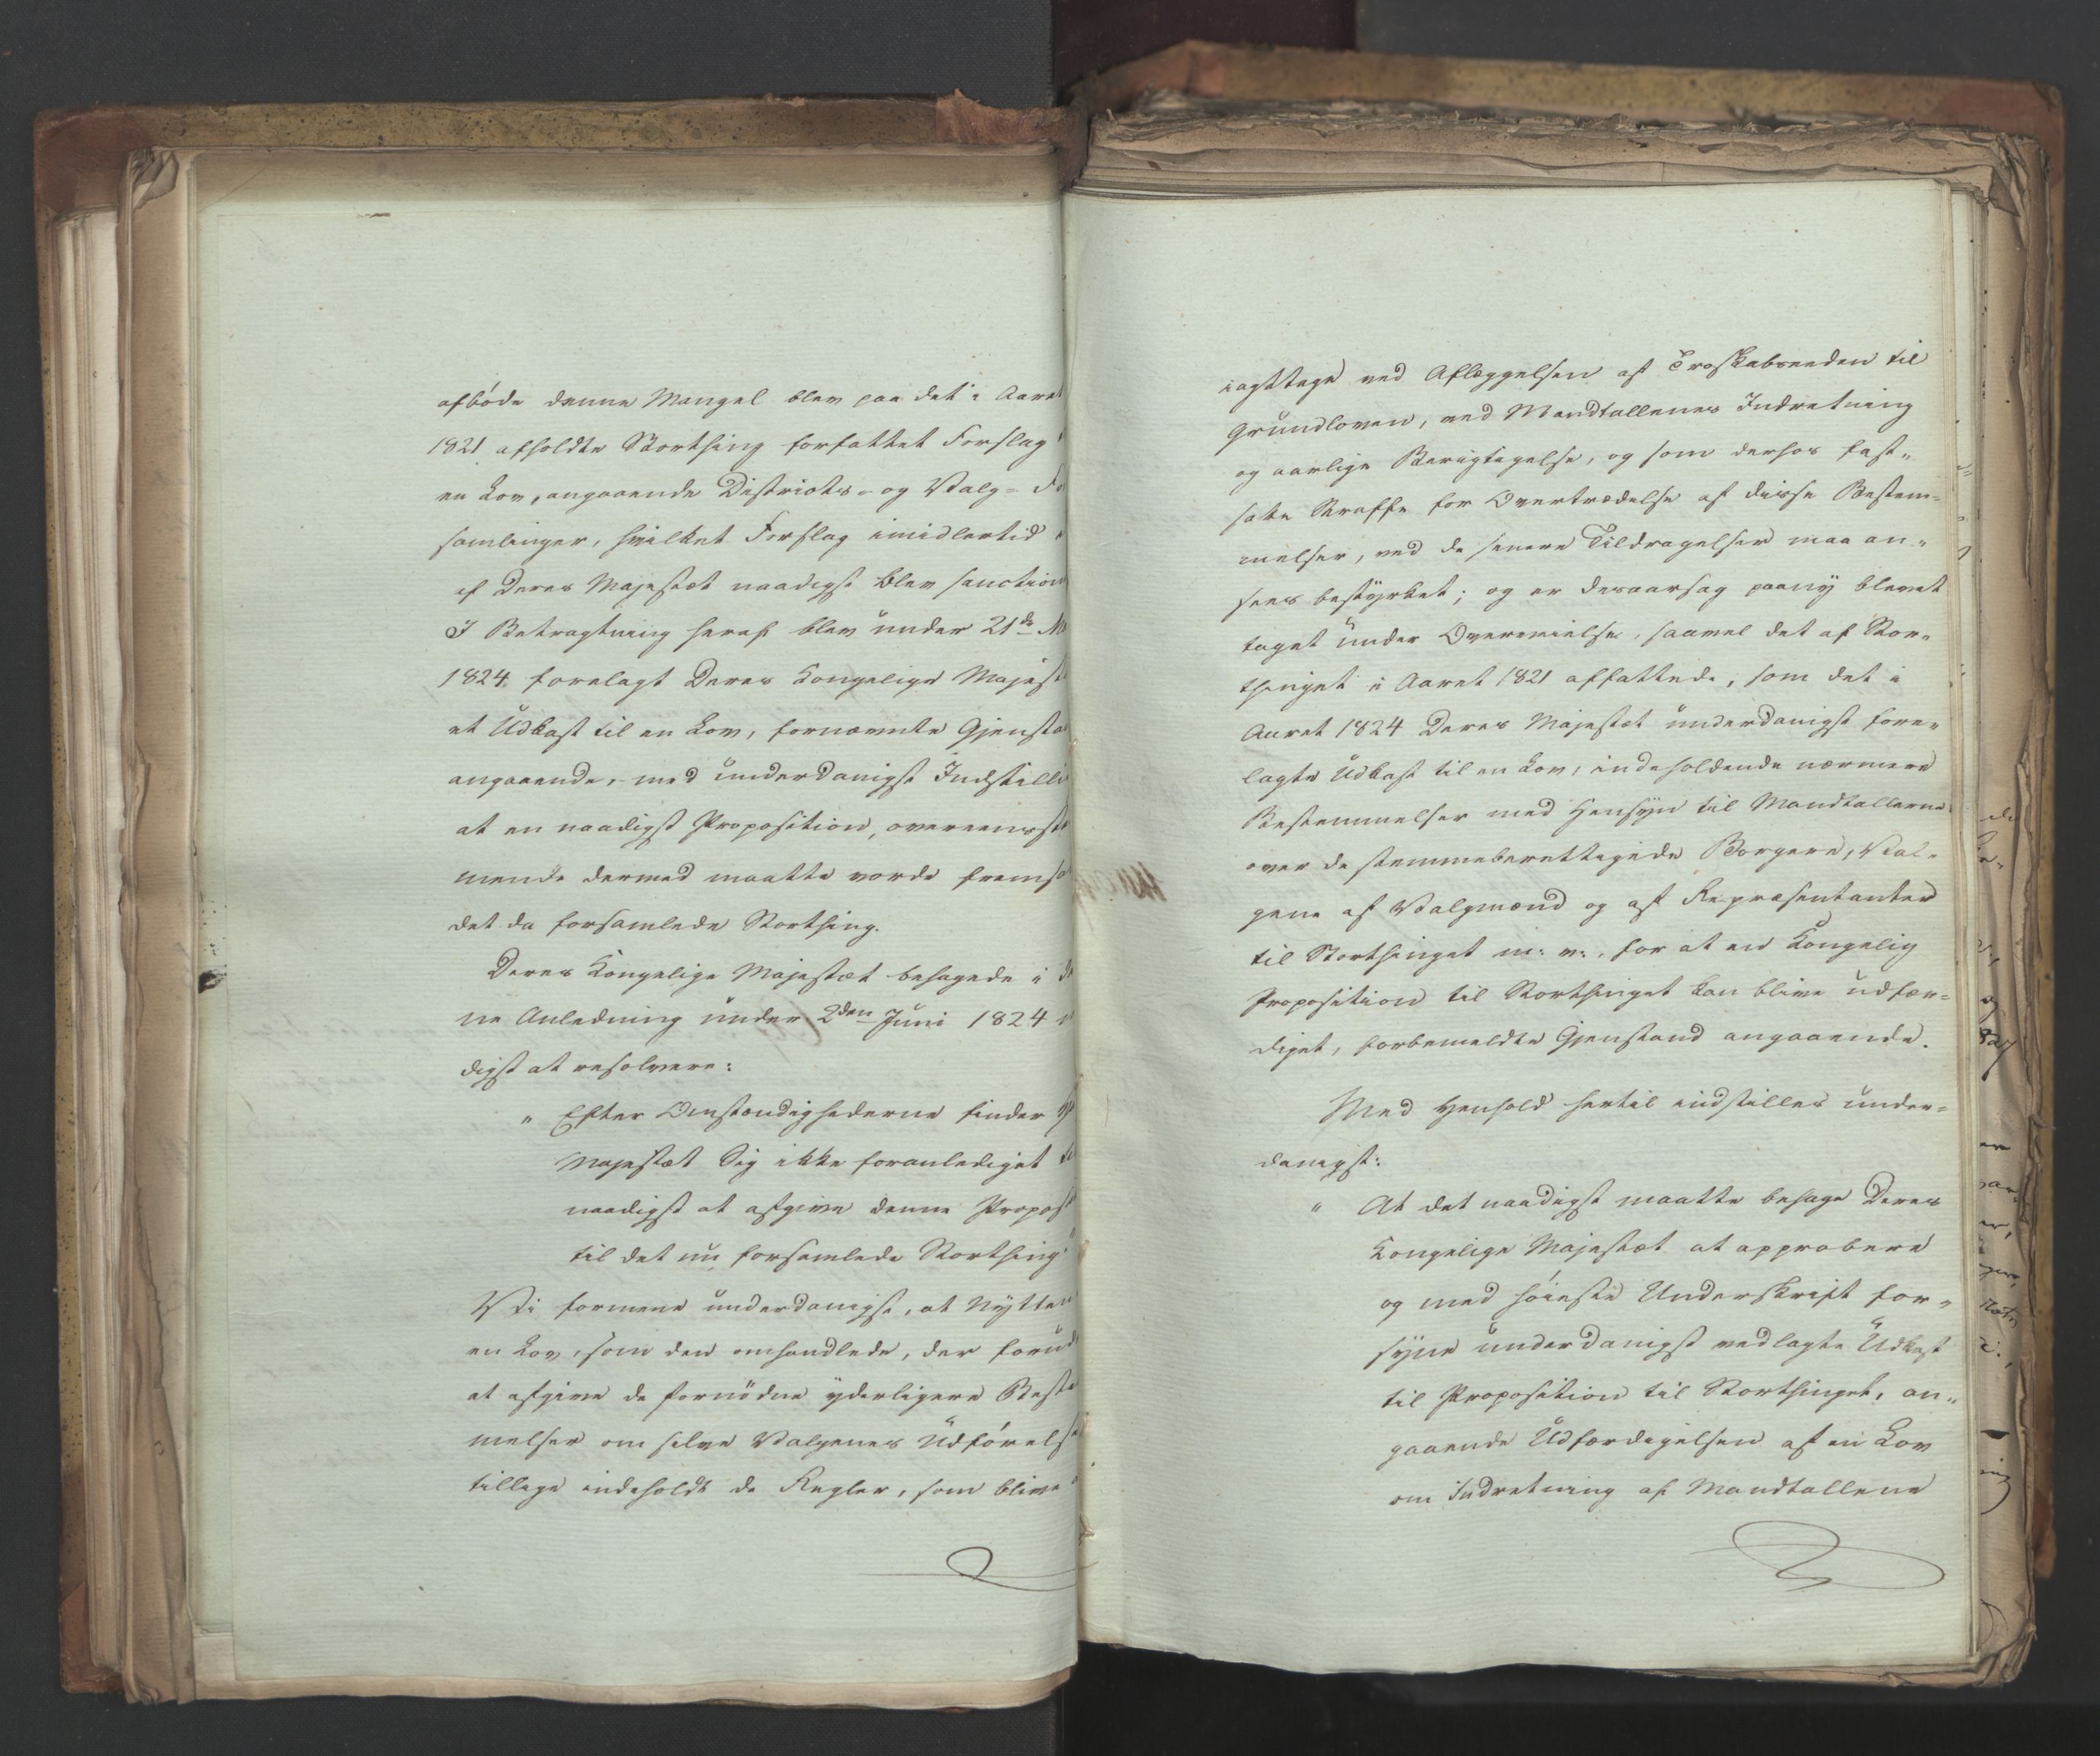 afbøde denne Mangel blev paa det i Aaret
1821 afholdte Storthing forfattet Forslag
en Lov, angaaende Districts- og Valg- Fo
samlinger, hvilket Forslag imidlertid
af Deres Majestæt naadigst blev sanction
I Betragtning heraf blev under 21de Ma
1824 forelagt Deres Kongelige Majest
et Udkast til en Lov, fornævnte Gjensta
angaaende, med underdanigst Indstilli
at en naadigst Proposition, overeensst
mende dermed maatte vorde fremsa
det da forsamlede Storthing.
Deres Kongelige Majestæt behagede i de
ne Anledning under 2den Juni 1824 n
digst at resolvere:
" Efter Omstændighederne finder
Majestæt Sig ikke foranlediget til
naadigst at afgive denne Propos
til det nu forsamlede Storthing"
Vi formene underdanigst, at Nytten
en Lov, som den omhandlede, der forud
at afgive de fornødne yderligere Beste
melser om selve Valgenes Udførelse
tillige indeholdt de Regler, som blive
iagttage ved Aflæggelsen af Troskabseeden til
Grundloven, ved Mandtallenes Indretning
og aarlige Berigtigelse, og som derhos fast-
satte Straffe for Overtrædelse af disse Bestem-
melser, ved de senere Tildragelser maa an-
sees bestyrket; og er desaarsag paany blevet
taget under Overveielse, saavel det af Stor-
thinget i Aaret 1821 affattede, som det i
Aaret 1824 Deres Majestæt underdanigst fore-
lagte Udkast til en Lov, indeholdende nærmere
Bestemmelser med Hensyn til Mandtallerne
over de stemmeberettigede Borgere, Val-
gene af Valgmænd og af Repræsentanter
til Storthinget m: v:, for at en Kongelig
Proposition til Storthinget kan blive udfær-
diget, forbemeldte Gjenstand angaaende.
Med Henhold hertil indstilles under-
danigst:
" At det naadigst maatte behage Deres
Kongelige Majestæt at approbere
og med høieste Underskrift for-
syne underdanigst vedlagte Udkast
til Proposition til Storthinget, an-
gaaende Udfærdigelsen af en Lov
om Indretning af Mandtallene